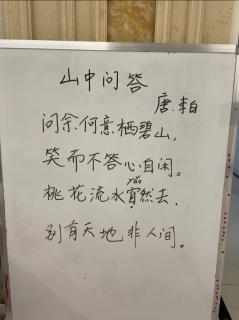 山中问答
唐.李白
问余何意栖碧山,
笑而不答心自闲。
yǎo
桃花流水窅然去,
别有天地非人间。